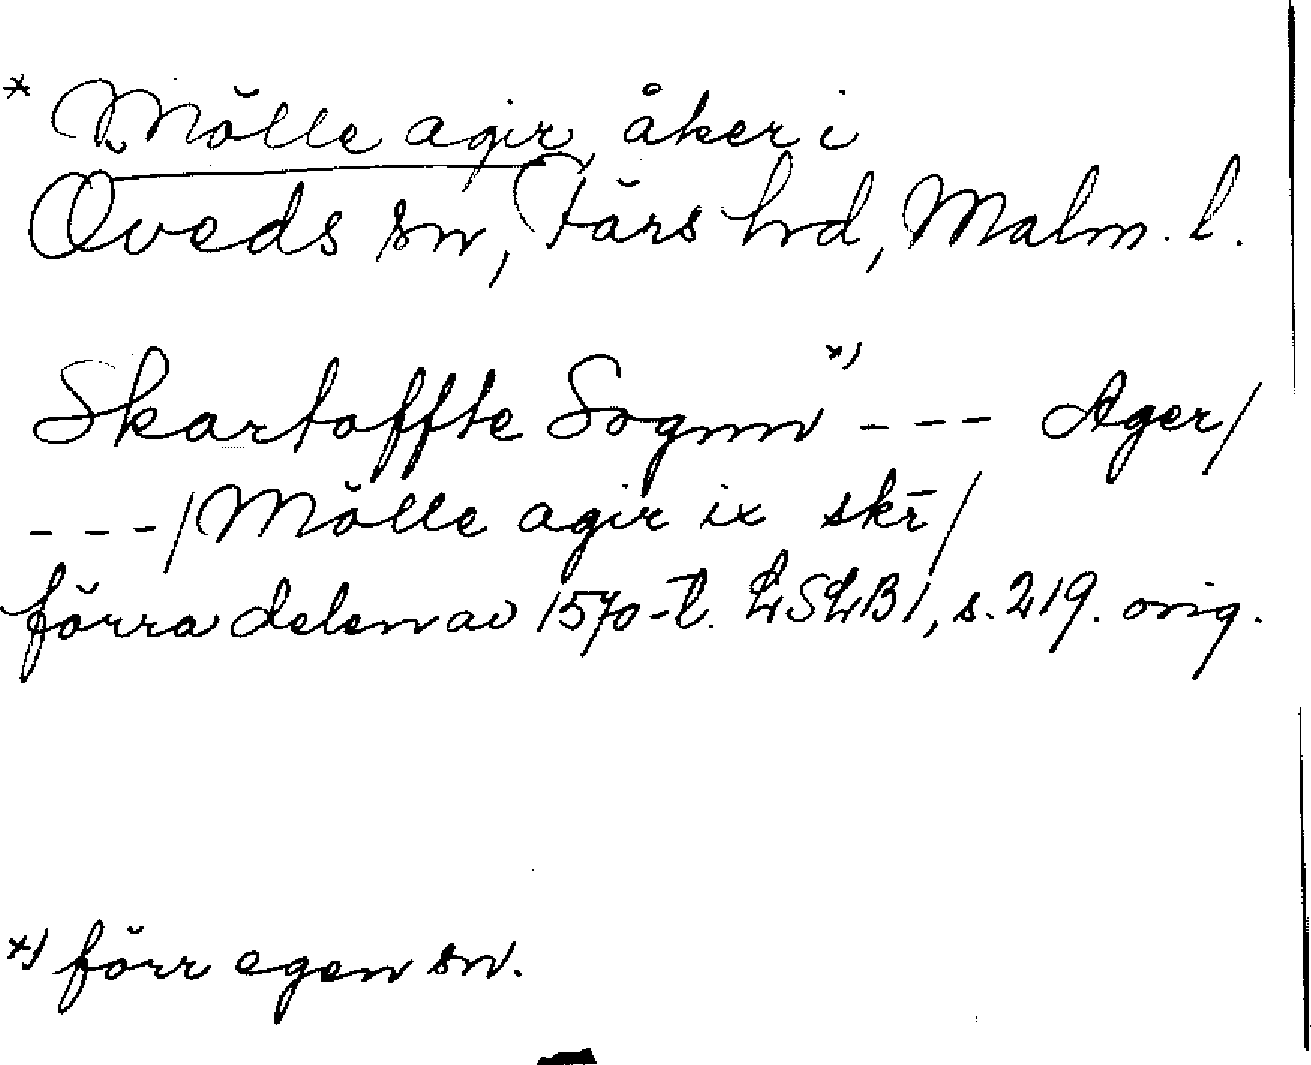 * Mölle agir, åker i
Öveds sn, Färs hd, Malm. l.
Skartoffte Sognn *) - - - Ager/
- - - /Mölle agir ix skr̄/
förra delen av 1570-t. LSLB1, s. 219. orig.
*) förr egen sn.